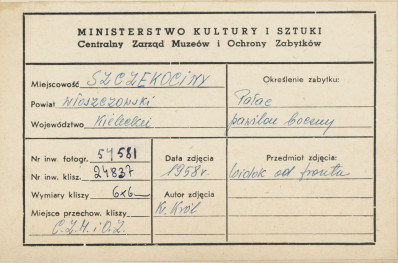 MINISTERSTWO KULTURY I SZTUKI
Centralny Zarząd Muzeów i Ochrony Zabytków
Miejscowość SZCZEKOCINY
Powiat włoszczowski
Województwo Kieleckie
Określenie zabytku:
Pałac
pawilon boczny
Nr inw. fotogr. 54581
Nr inw. klisz. 24837
Wymiary kliszy 6x6
Miejsce przechow. kliszy
C.Z.M. i O.Z.
Data zdjęcia
1958 r.
Autor zdjęcia
K. Król
Przedmiot zdjęcia:
widok od frontu